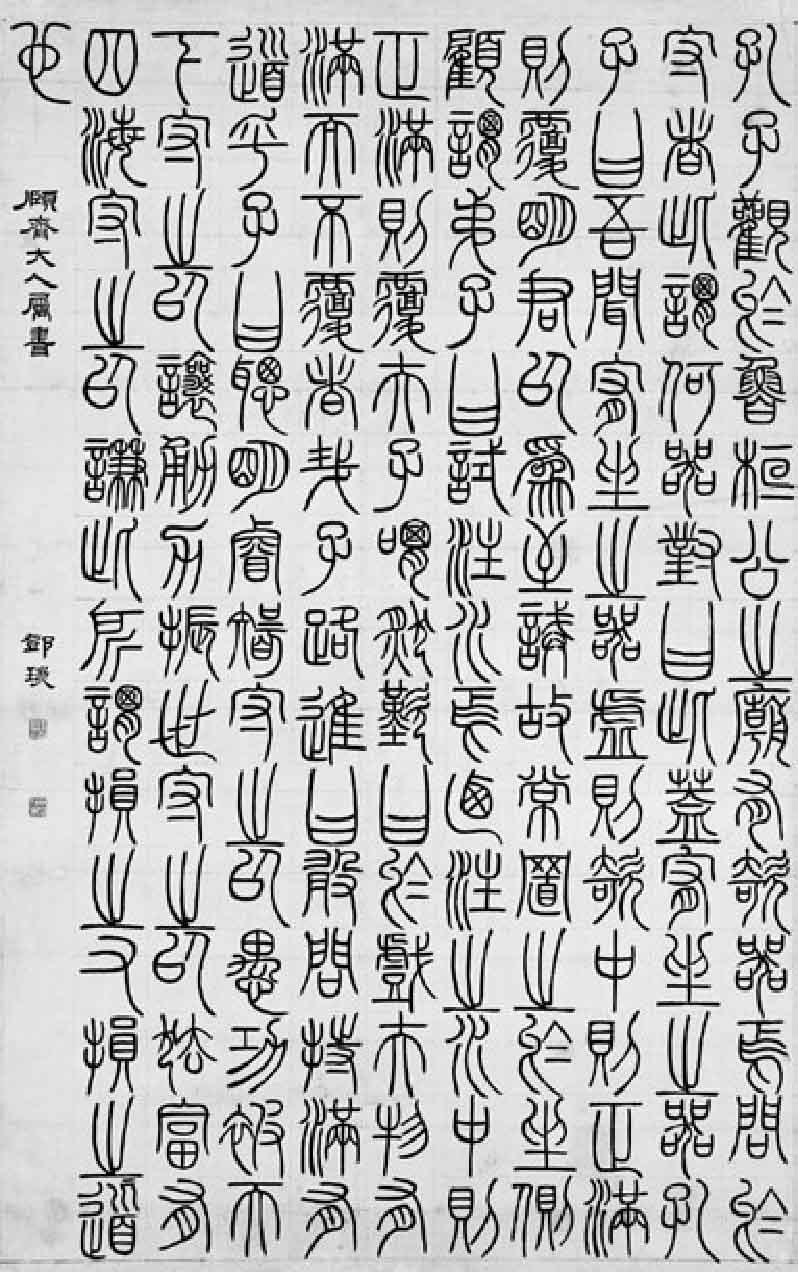 孔子觀於魯桓公之廟有欹器焉問於
守者此謂何器對曰此蓋宥坐之器孔
子曰吾聞宥坐之器虛則欹中則正滿
則覆明君以爲至誡故常置之於坐側
顧謂弟子曰試注水焉迺注之水中則
正滿則覆夫子喟然歎曰於戲夫物有
滿而不覆者哉子路進曰敢問持滿有
道乎子曰聰明睿智守之以愚功被天
下守之以讓勇力振世守之以怯富有
四海守之以謙此所謂損之又損之道
也
頤齊大人屬書
鄧琰